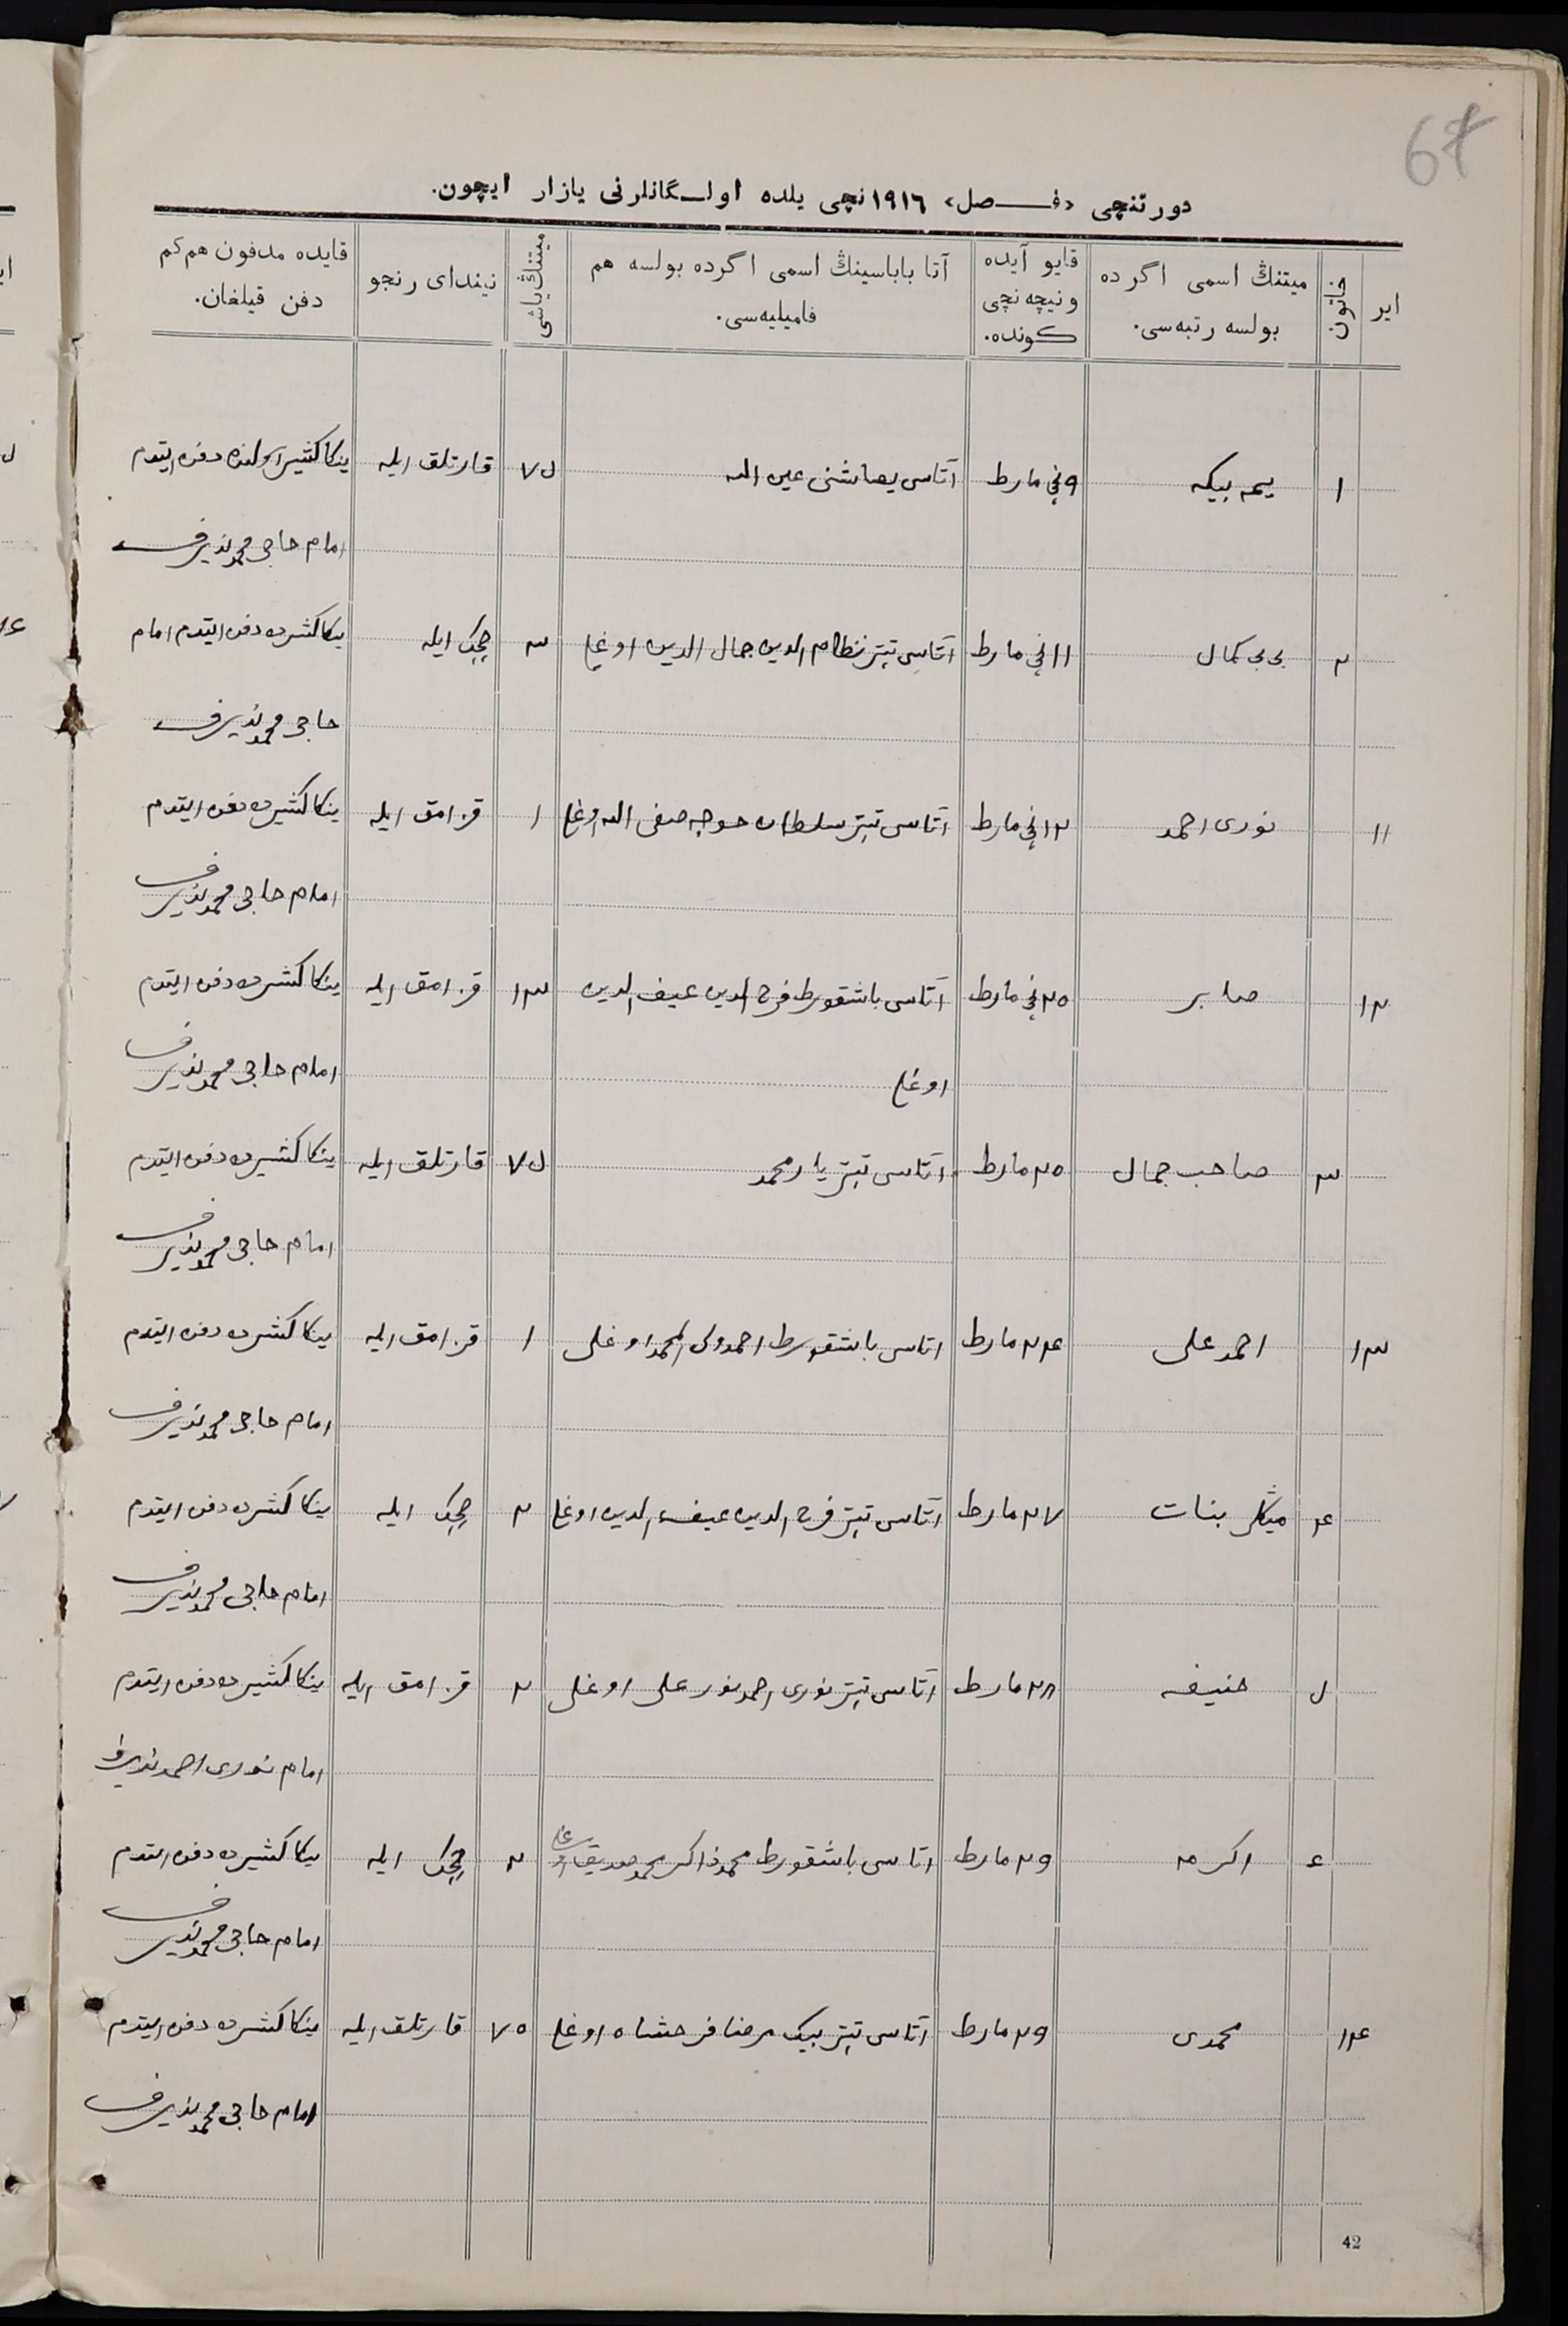 67
دورتنچی «فـصل» ١٩١٦نچی یلده اولـگانلرنی یازار ایچون.
ایر
خاتون
میتنڭ اسمی اگر ده
بولسه رتبه‌سی.
قایو آیده
ونیچه نچی
كونده.
آتا باباسینڭ اسمی اگرده بولسه هم
فامیلیه‌سی.
میتنڭ یاشی
نیندای رنجو
قایده مدفون هم كم
دفن قیلغان.
١ بیكه ٩نچی مارط آتاسی عین الله ٧۵ قارتلق ایله دفن ایتدم
امام حاجی محمد نذیرف
٢ بی بی كمال ١١نچی مارط آتاسی تیتر نظام الدین جمال الدین اوغلی ٣ چچك ایله ینكا كشیرده دفن ایتدم امام
حاجی محمد نذیرف
١١ نوری احمد ١٢نچی مارط آتاسی تیتر سلطان خوجه صفی الله اوغلی ١ قزامق ایله ینكا كشیرده دفن ایتدم
امام حاجی محمد نذیرف
١٢ صابر ٢٥نچی مارط آتاسی باشقورط فرح الدین عیف الدین ١٣ قزامق ایله ینكا كشیرده دفن ایتدم
اوغلی امام حاجی محمد نذیرف
٣ صاحب جمال ٢٥ مارط آتاسی تیتر یارمحمد ٧۵ قارتلق ایله ینكا كشیرده دفن ایتدم
امام حاجی محمد نذیرف
١٣ احمد علی ٢٤ مارط اتاسی باشقورط احمدولی اوغلی ١ قزامق ایله ینكا كشیرده دفن ایتدم
امام حاجی محمد نذیرف
٤ بنات ٢٧ مارط آتاسی تیتر فرح الدین عیف الدین اوغلی ٢ چچك ایله ینكا كشیرده دفن ایتدم
امام حاجی محمد نذیرف
۵ حنیفه ٢٨ مارط آتاسی تیتر نوری احمد نور علی اوغلی ٢ قزامق ایله ینكا كشیرده دفن ایتدم
امام نوری احمد نذیرف
٦ اكرمه ٢٩ مارط اتاسی باشقورط محمدذاكر محمدصدیق اوغلی ٢ چچك ایله ینكا كشیرده دفن ایتدم
امام حاجی محمد نذیرف
١٤ محمدی ٢٩ مارط آتاسی تیتر بیك مرضا فرحشاه اوغلی ٧٥ قارتلق ایله ینكا كشیرده دفن ایتدم
امام حاجی محمد نذیرف
42